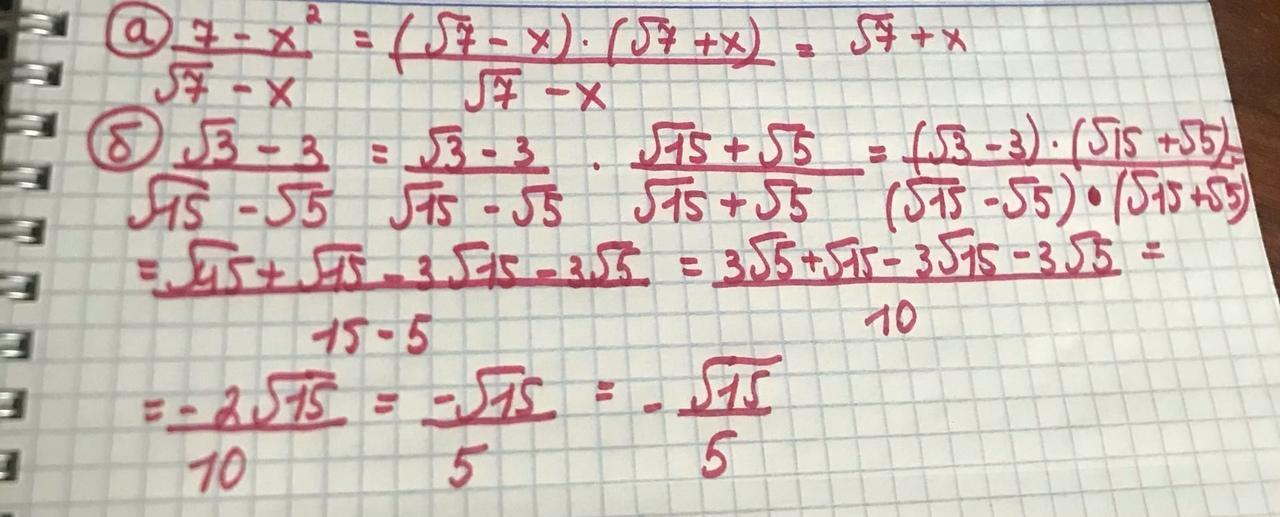 а) (7 - x²)/(√7 - x) = ((√7 - x) · (√7 + x))/(√7 - x) = √7 + x
б) (√3 - 3)/(√15 - √5) = (√3 - 3)/(√15 - √5) · (√15 + √5)/(√15 + √5) = ((√3 - 3) · (√15 + √5))/((√15 - √5) · (√15 + √5)) =
= (√45 + √15 - 3√15 - 3√5)/(15 - 5) = (3√5 + √15 - 3√15 - 3√5)/10 =
= (-2√15)/10 = (-√15)/5 = - √15/5